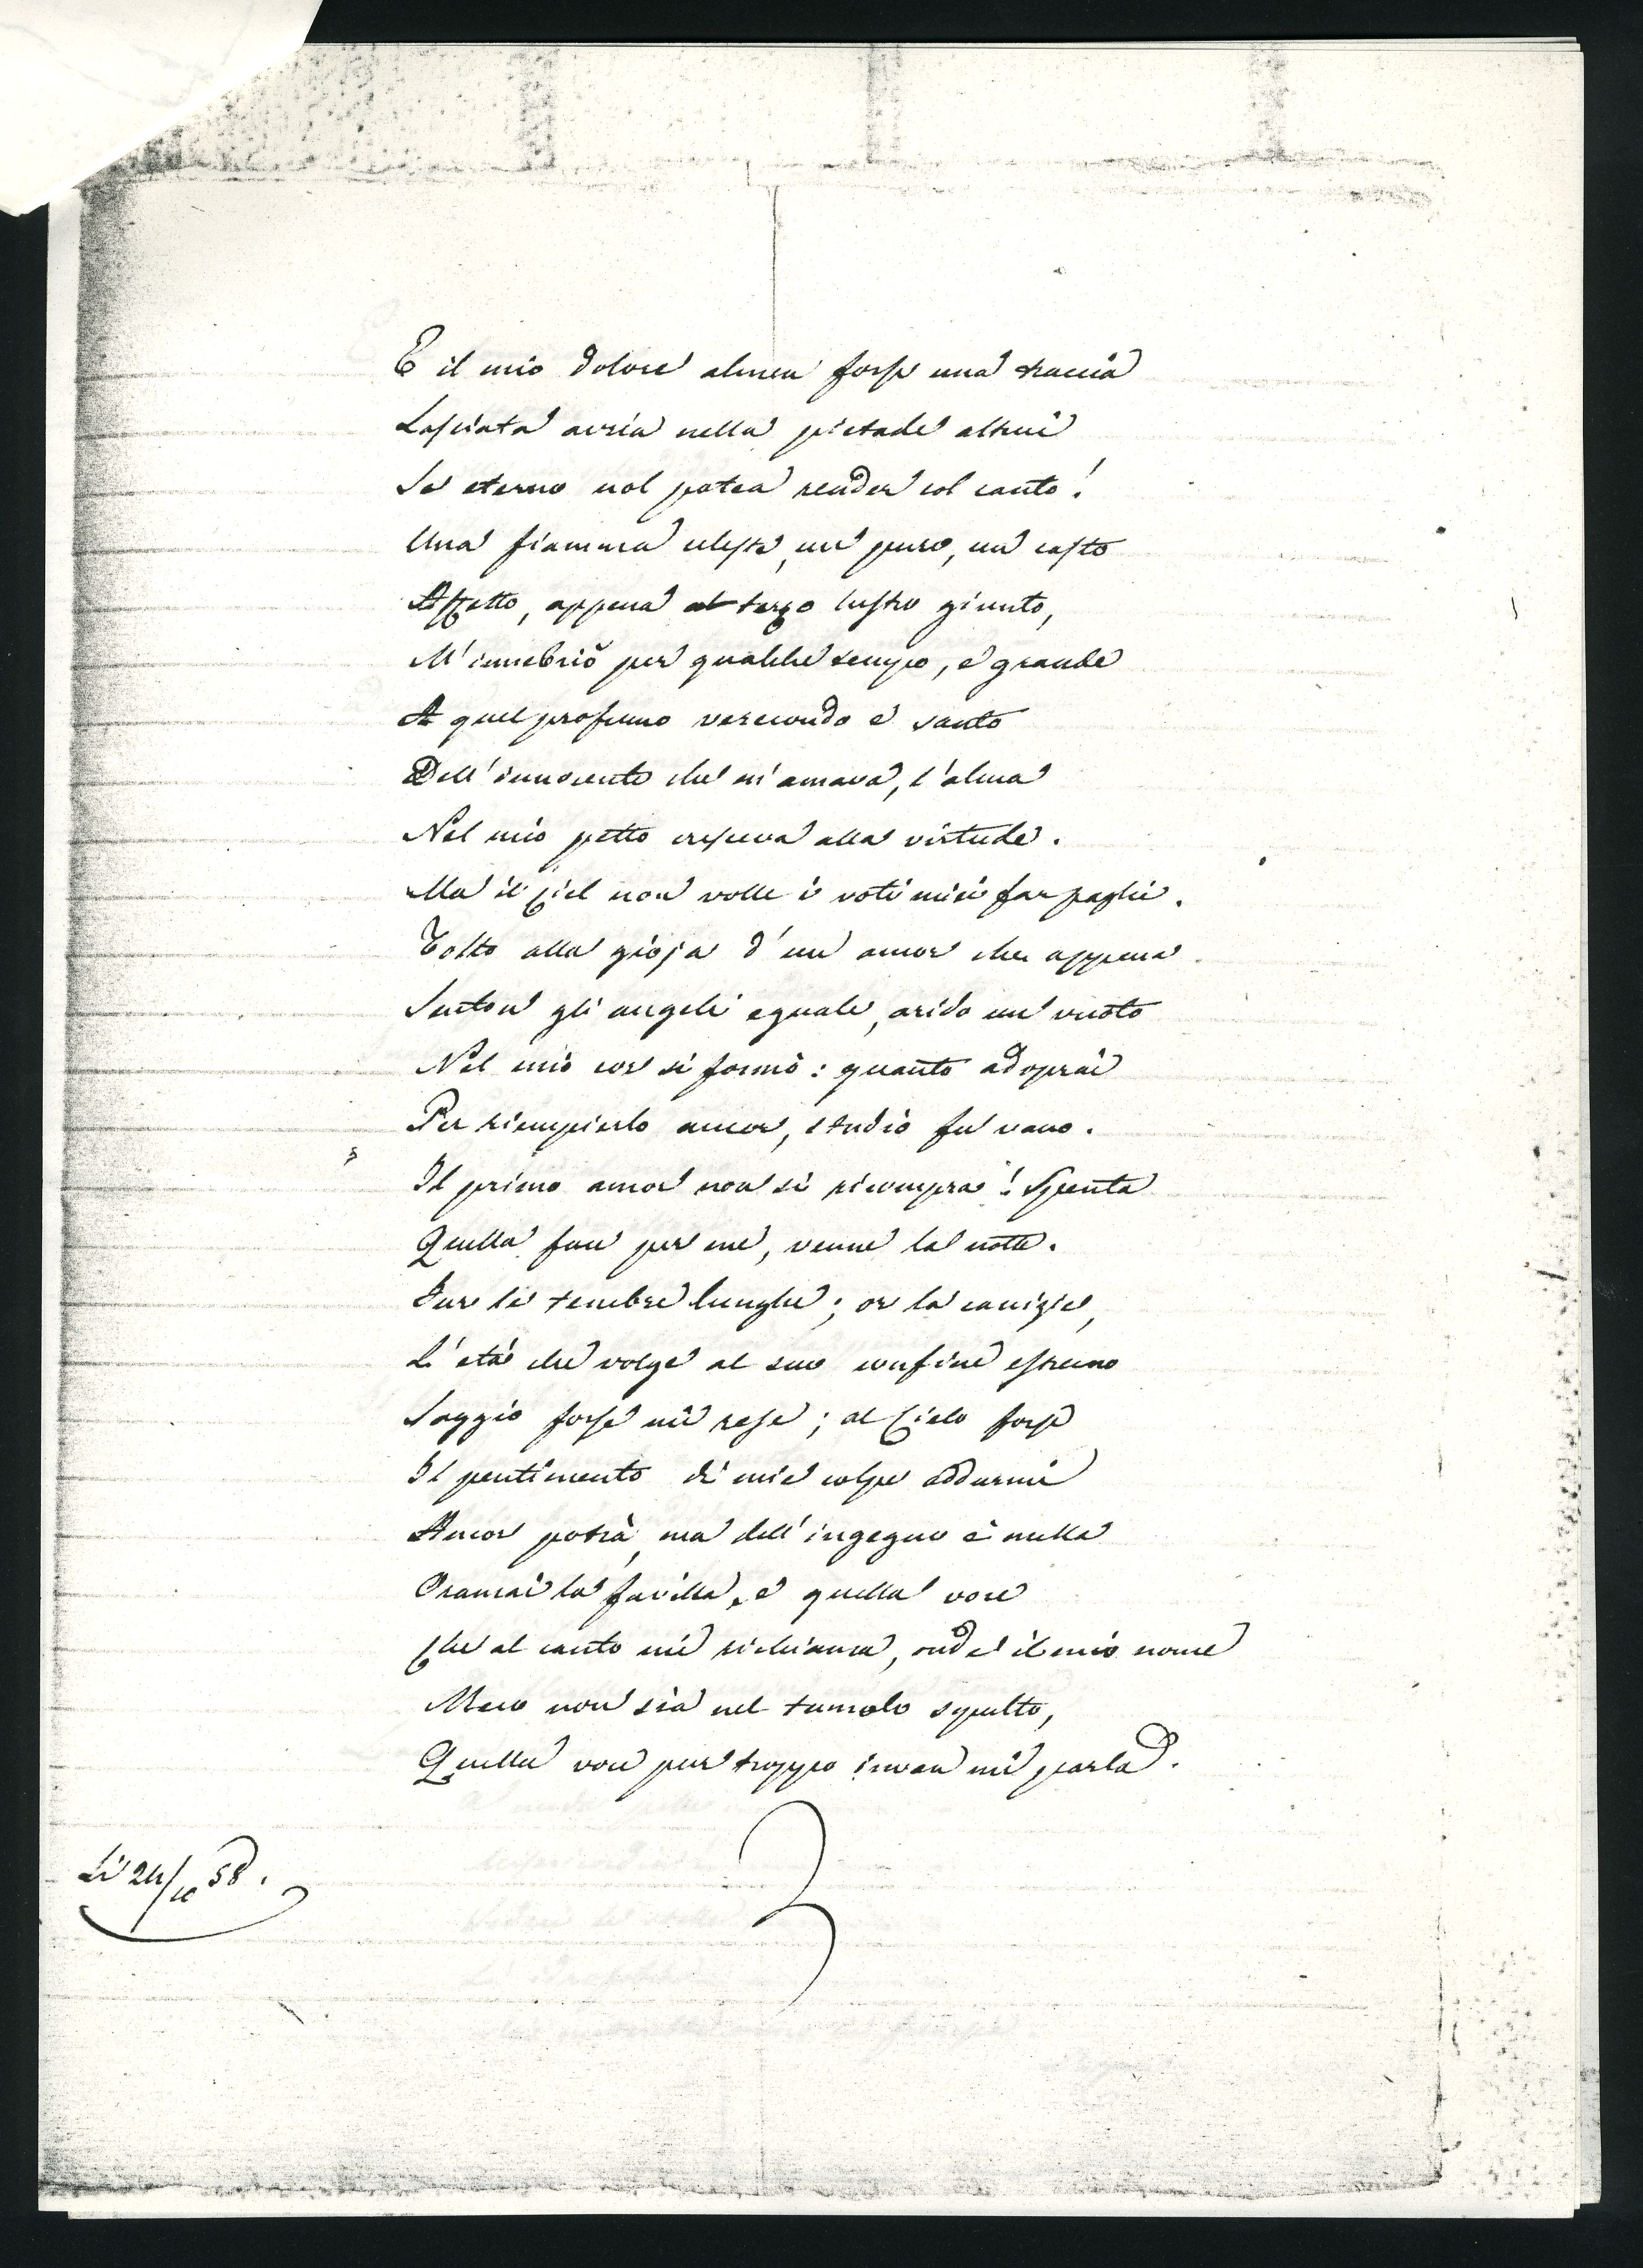 E il mio dolore almen forse una traccia
Lasciata avria nella pietade altrui
Se eterno nol potea render col canto!
Una fiamma celeste, un puro, un casto
Affetto, appena al terzo lustro giunto,
M'innebriò per qualche tempo, e grande
A quel profumo verecondo e santo
Dell'innocente che m'amava, l'alma
Nel mio petto cresceva alla virtude.
Ma il Ciel non volle i voti miei far paghi.
Tolto alla gioja d'un amor che appena
Senton gli angeli eguale, arido un vuoto
Nel mio cor si formò: quanto adoprai
Per riempierlo amor, studio fu vano.
Il primo amor non si ricompra! Spenta
Quella face per me, venne la notte.
Fur le tenebre lunghe; or la canizie,
L'età che volge al suo confine estremo
Saggio forse mi rese; al Cielo forse
Il pentimento di mie colpe addurmi
Ancor potrà, ma dell'ingegno è nulla
Oramai la favilla, e quella voce
Che al canto mi richiama, onde il mio nome
Meco non sia nel tumolo sepulto,
Quella voce pur troppo invan mi parla.
Li 24/10 58.